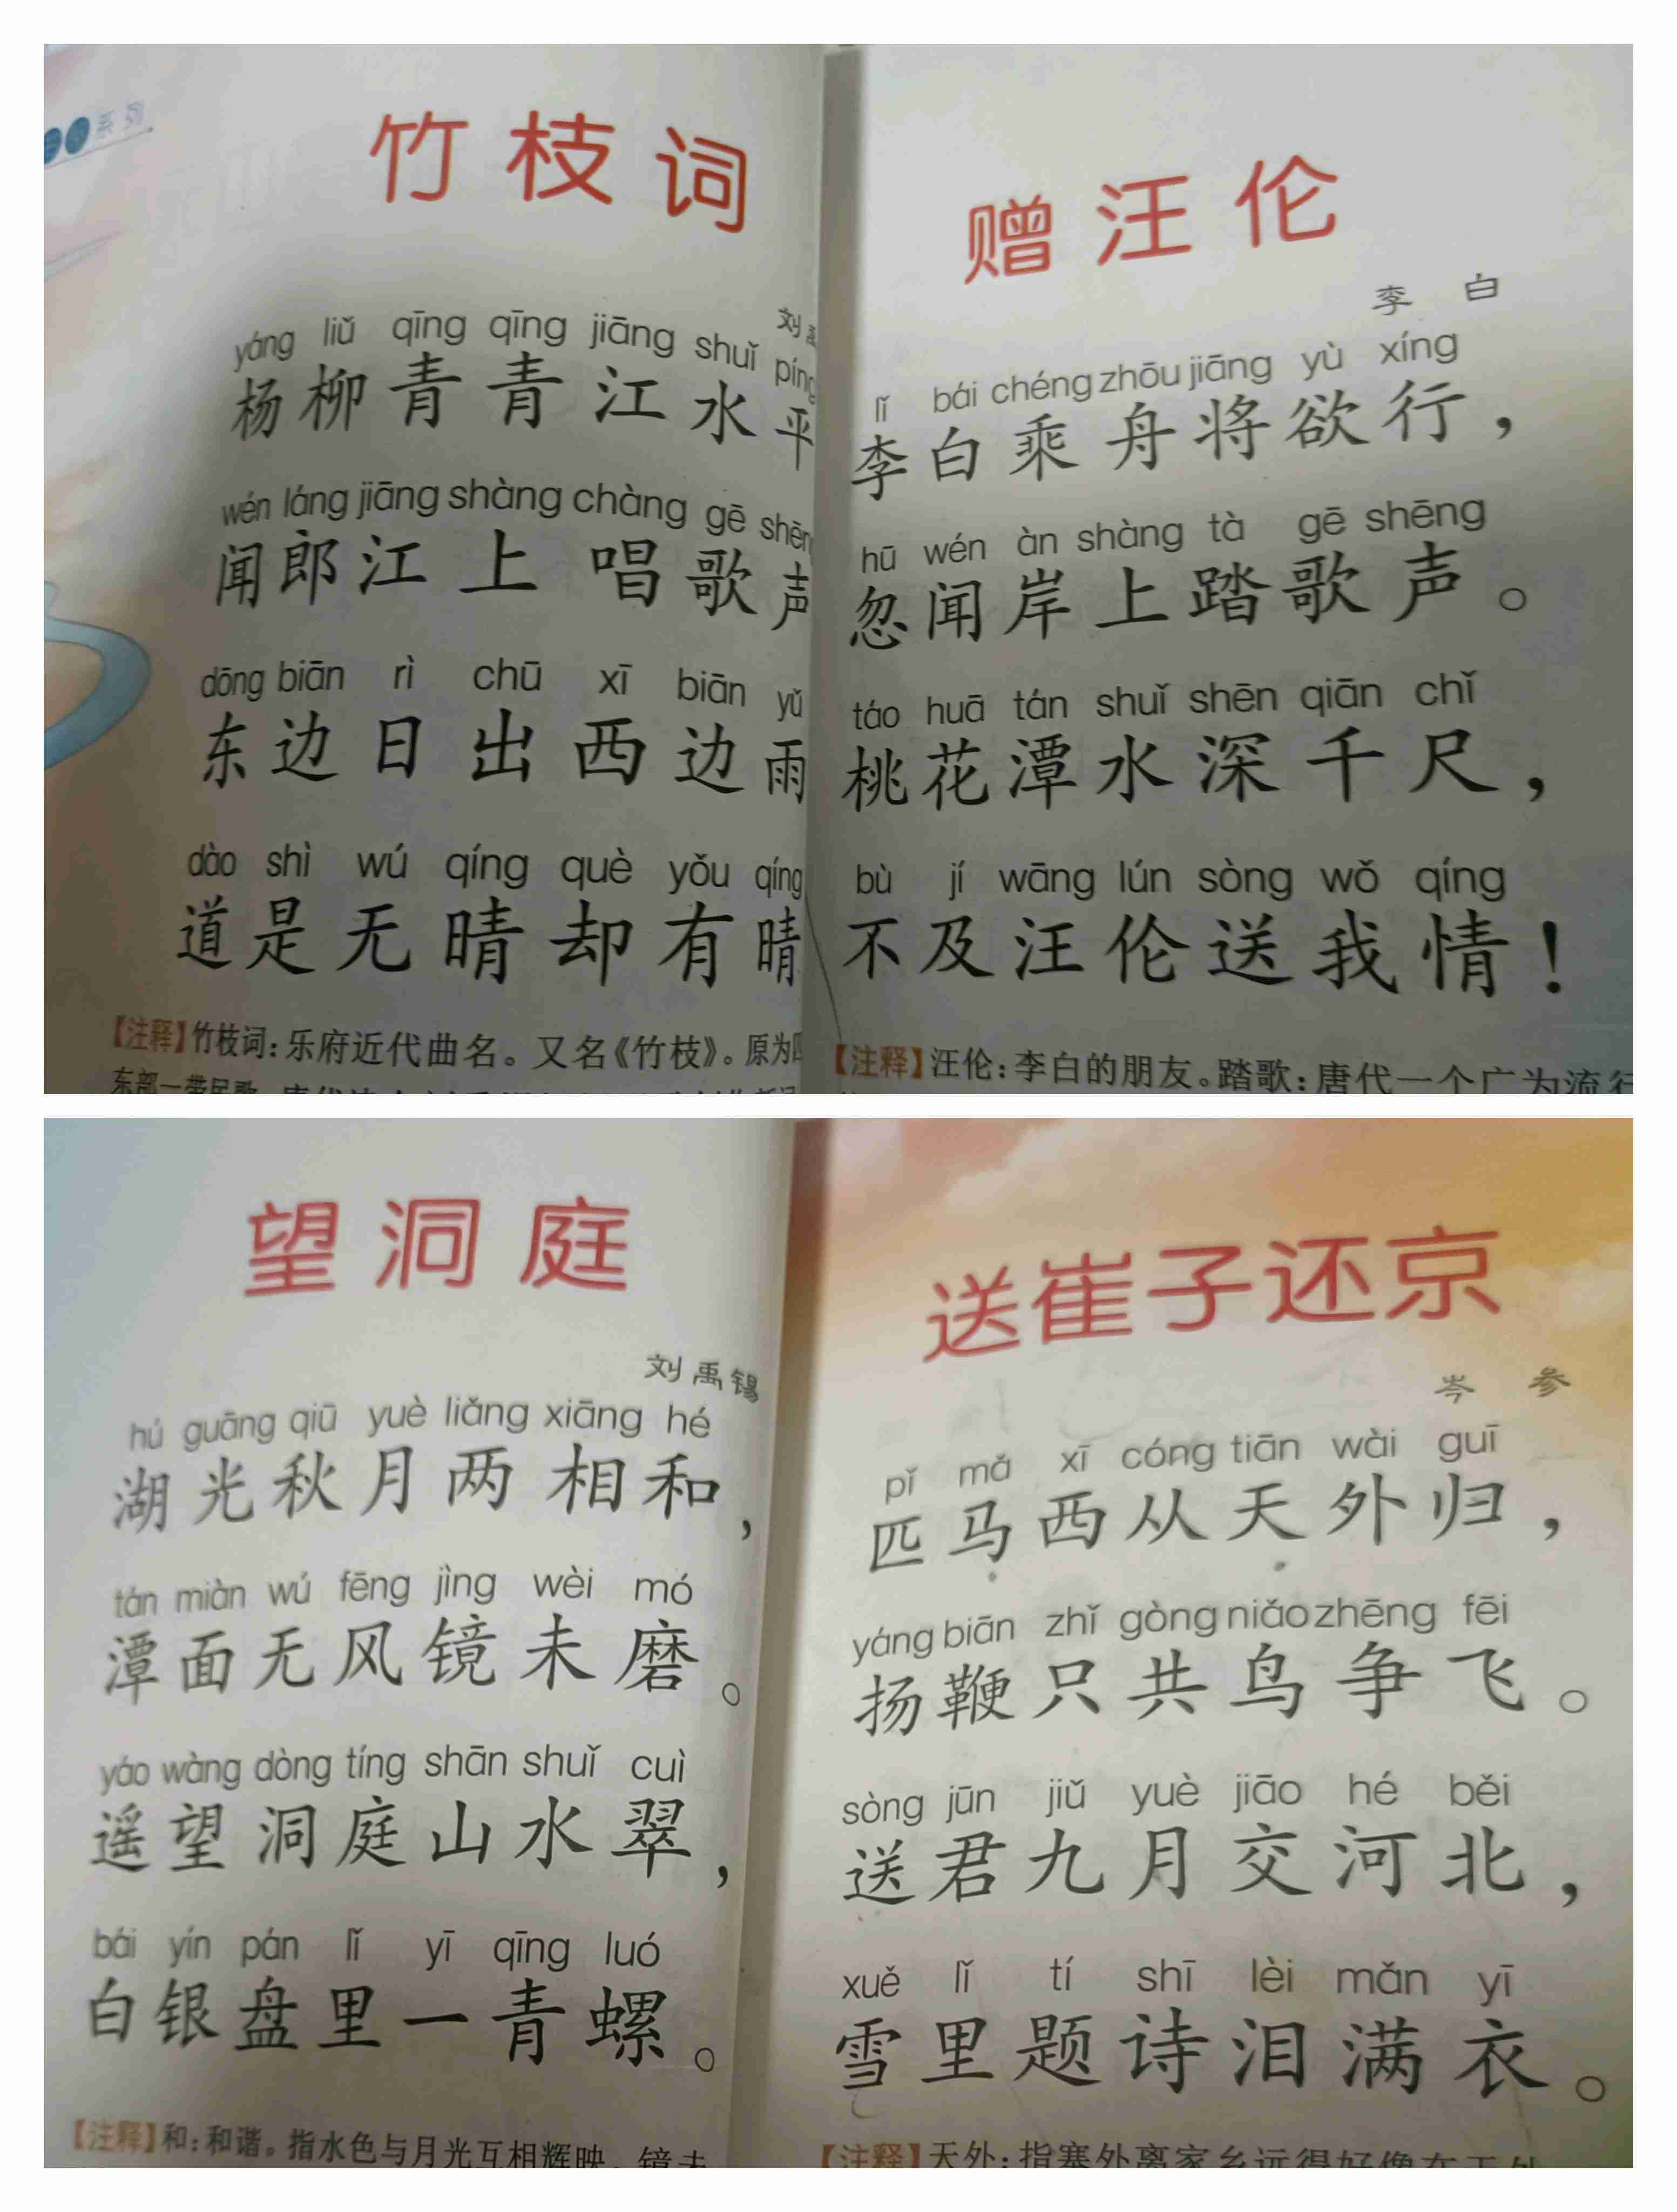 竹枝词
刘
yáng liǔ qīng qīng jiāng shuǐ píng
杨柳青青江水平
wén láng jiāng shàng chàng gē shēng
闻郎江上唱歌声
dōng biān rì chū xī biān yǔ
东边日出西边雨
dào shì wú qíng què yǒu qíng
道是无晴却有晴
【注释】竹枝词：乐府近代曲名。又名《竹枝》。原为四
东部一带民歌
赠汪伦
李白
lǐ bái chéng zhōu jiāng yù xíng
李白乘舟将欲行，
hū wén àn shàng tà gē shēng
忽闻岸上踏歌声。
táo huā tán shuǐ shēn qiān chǐ
桃花潭水深千尺，
bù jí wāng lún sòng wǒ qíng
不及汪伦送我情！
【注释】汪伦：李白的朋友。踏歌：唐代一个广为流行
望洞庭
刘禹锡
hú guāng qiū yuè liǎng xiāng hé
湖光秋月两相和，
tán miàn wú fēng jìng wèi mó
潭面无风镜未磨。
yáo wàng dòng tíng shān shuǐ cuì
遥望洞庭山水翠，
bái yín pán lǐ yī qīng luó
白银盘里一青螺。
【注释】和：和谐。指水色与月光互相辉映。镜未
送崔子还京
岑参
pǐ mǎ xī cóng tiān wài guī
匹马西从天外归，
yáng biān zhǐ gòng niǎo zhēng fēi
扬鞭只共鸟争飞。
sòng jūn jiǔ yuè jiāo hé běi
送君九月交河北，
xuě lǐ tí shī lèi mǎn yī
雪里题诗泪满衣。
【注释】天外：指塞外离家乡远得好像在天外